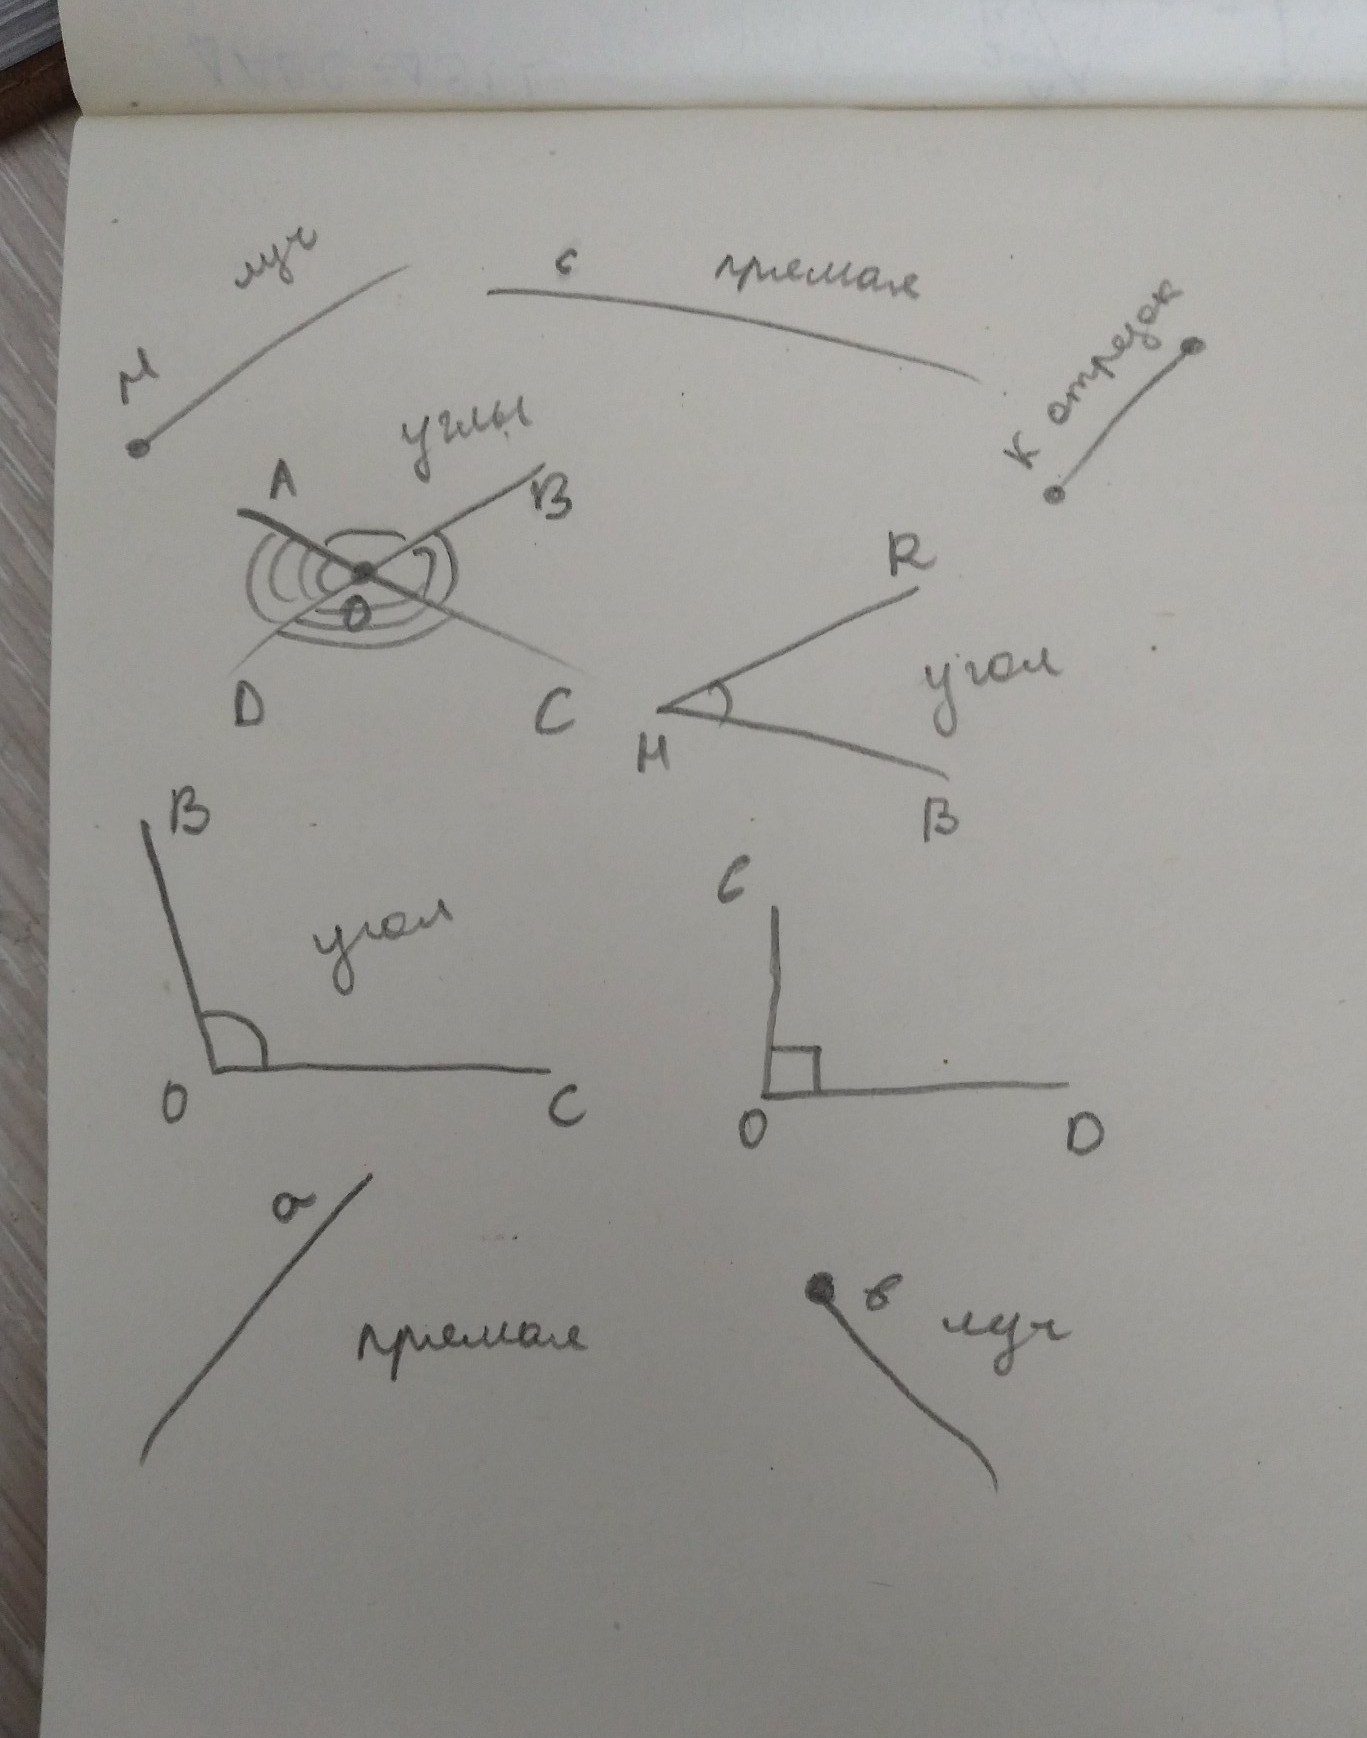 луч
с прямая
М
К отрезок
углы
A
B
O
D
C
R
угол
Н
B
B
угол
O
C
С
O
D
a
прямая
в луч